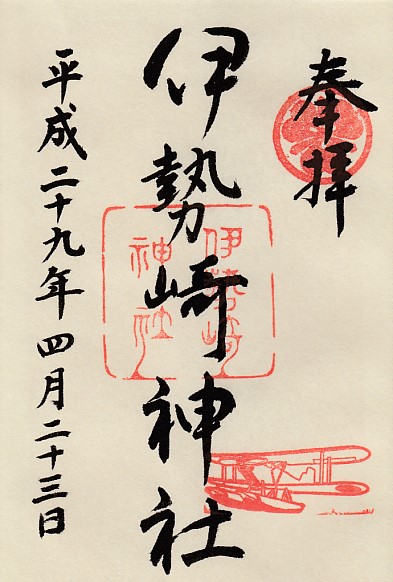 奉拝
伊勢崎神社
伊勢崎
神社
平成二十九年四月二十三日